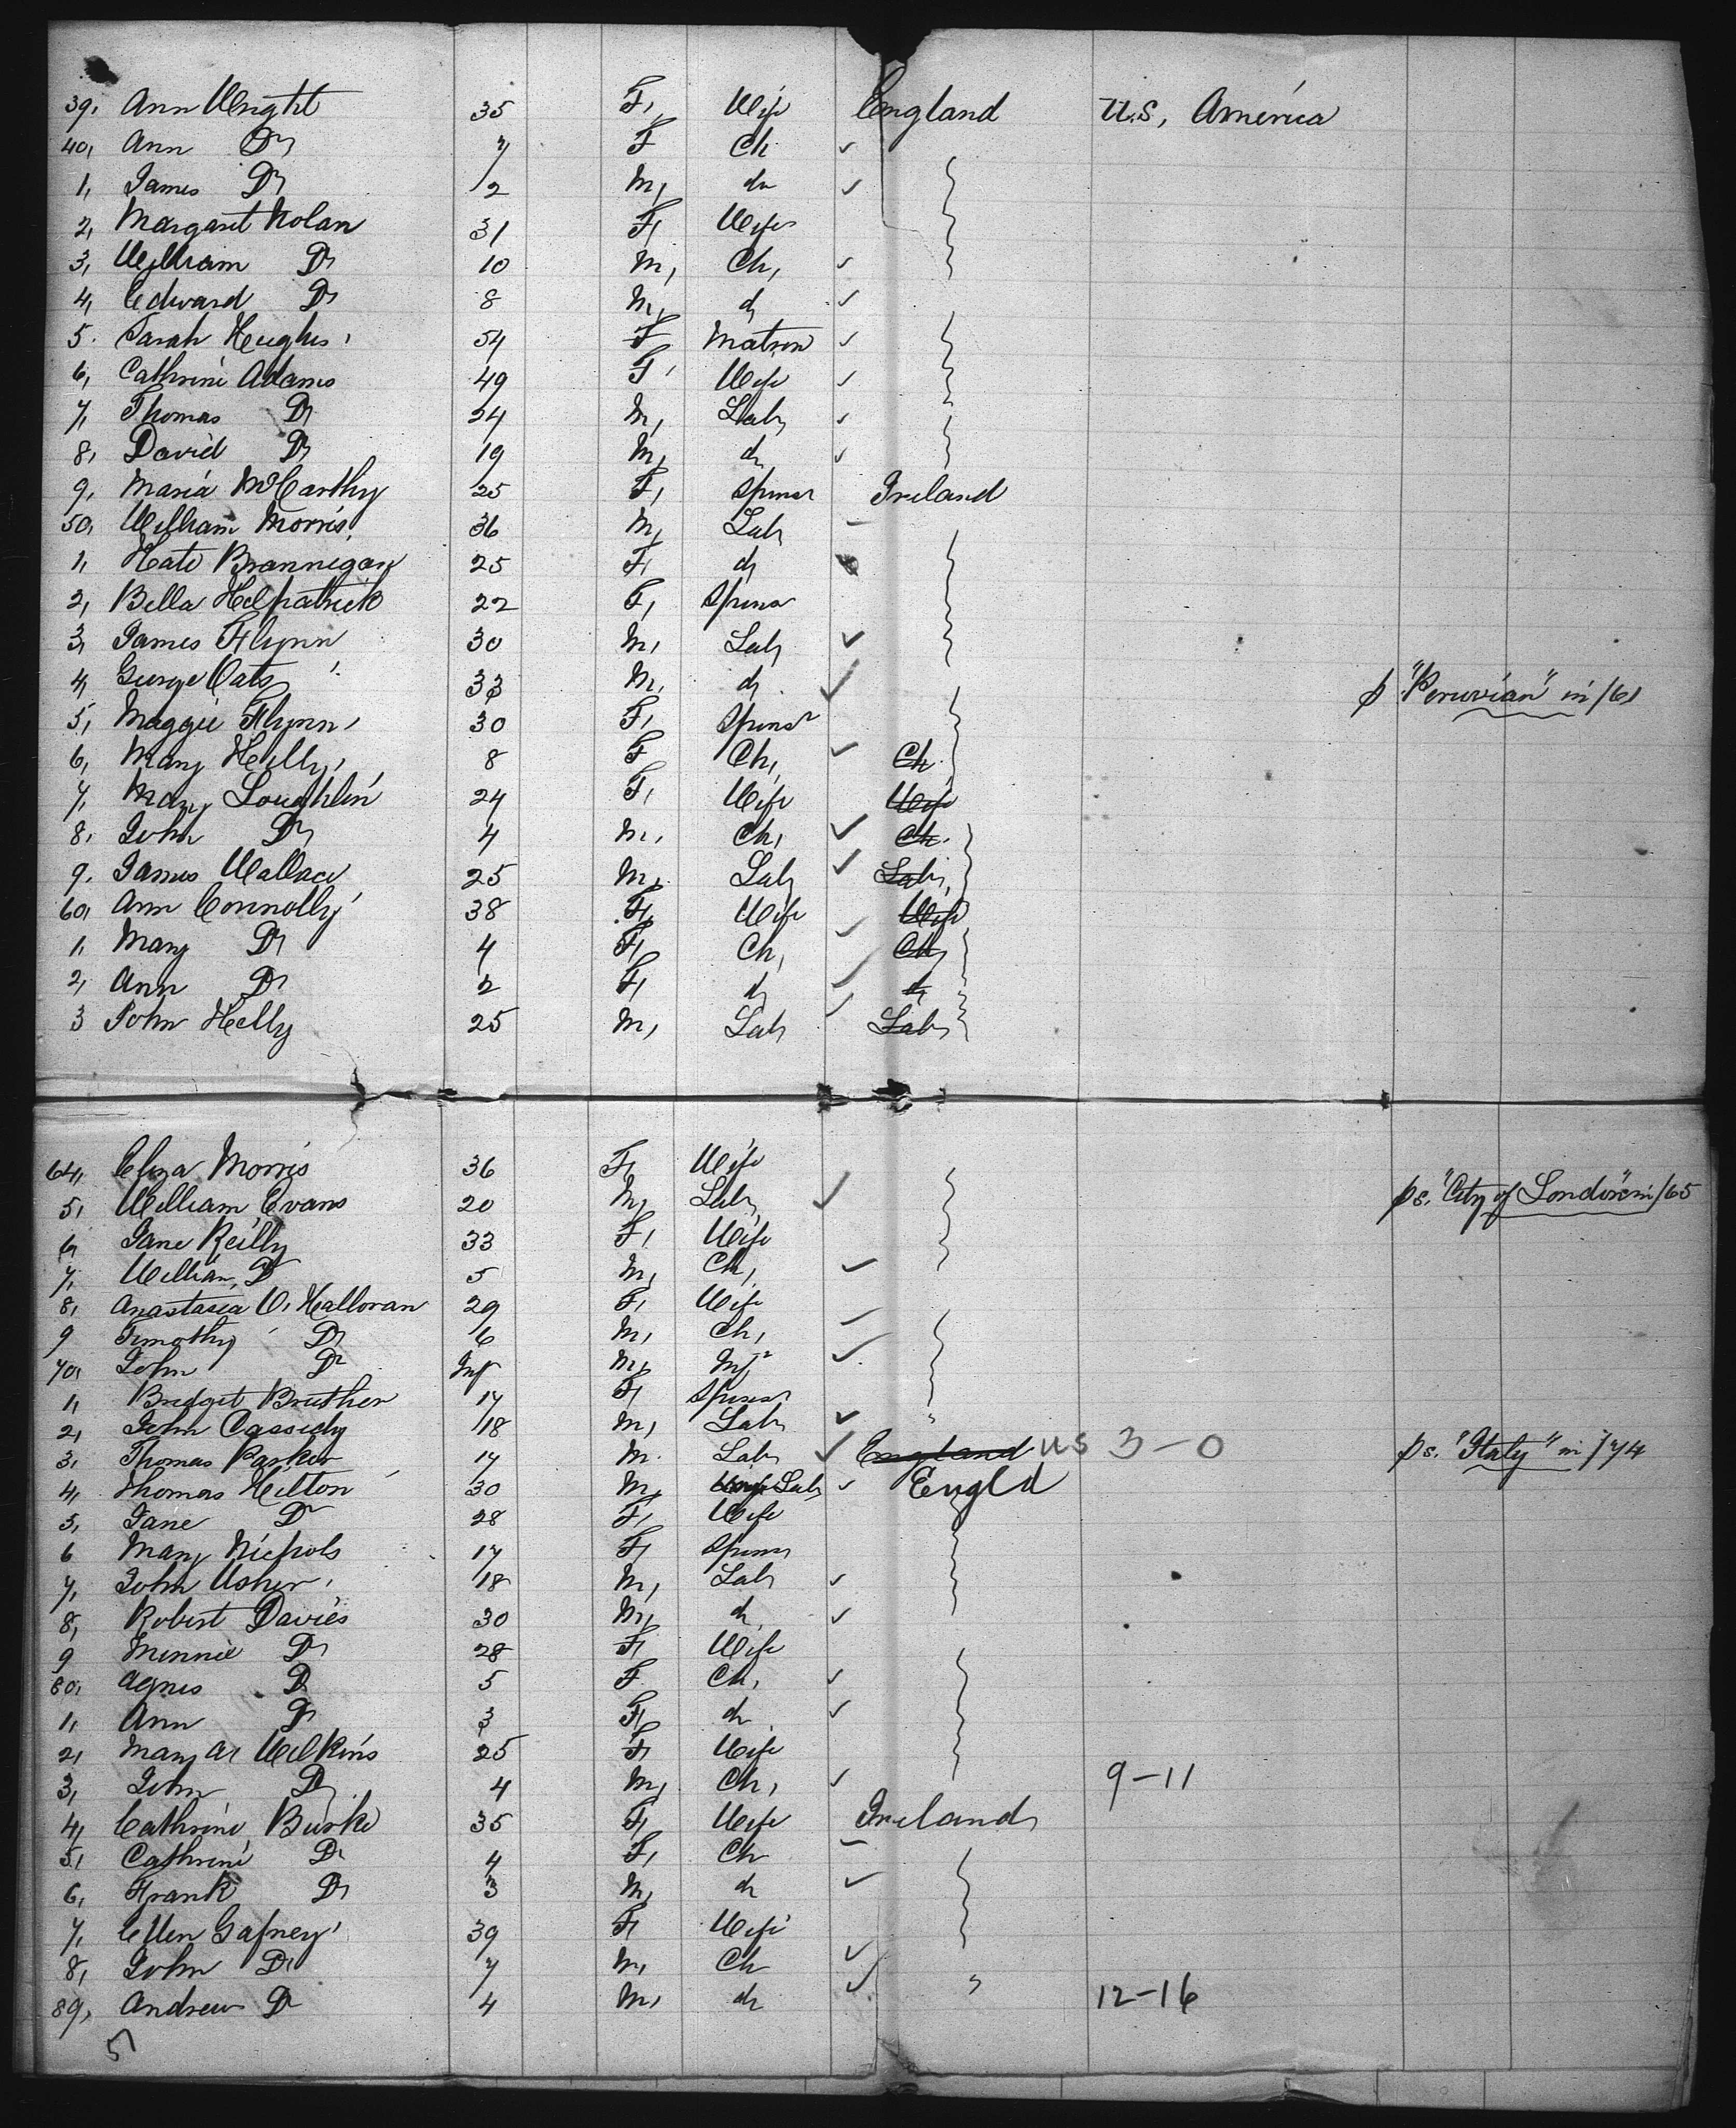 39, Ann Wright 35 F, Wife England U.S, America
40, Ann Do 7 F Ch
1, James Do 1/2 M, do
2, Margaret Nolan 31 F, Wife
3, William Do 10 M, Ch,
4, Edward Do 8 M, do
5. Sarah Hughes 54 F Matron
6, Cathrine Adams 49 F Wife
7, Thomas Do 24 M, Labr
8, David Do 19 M, do
9, Maria McCarthy 25 F, Spinsr Ireland
50, William Morris 36 M, Labr
1, Kate Brannegan 25 F, do
2, Bella Kelpatrick 22 F, Spinsr
3, James Flynn 30 M, Labr
4, George Oats 33 M, do p "Peruvian" in /61
5, Maggie Flynn 30 F, Spinsr
6, Mary Kelly 8 F Ch, Ch.
7, Mary Loughlin 24 F, Wife Wife
8, John Do 4 M, Ch, Ch.
9, James Wallace 25 M, Labr Labr
60, Ann Connolly 38 F, Wife Wife
1, Mary Do 4 F, Ch, Ch,
2, Ann Do 2 F, do do
3 John Kelly 25 M, Labr Labr
64, Eliza Morris 36 F, Wife
5, William Evans 20 M, Labr ps. "City of London" in /65
6, Jane Reilly 33 F, Wife
7, William Do 5 M, Ch,
8, Anastasia O'Halloran 29 F, Wife
9 Timothy Do 6 M, Ch,
70, John Do Inf M, Inft
1, Bridget 17 F, Spinsr
2, John Cassidy 18 M, Labr "
3, Thomas Parker 17 M. Labr England US 3-0 ps. "Italy" in /74
4, Thomas Hilton 30 M, Labr Engld
5, Jane Do 28 F, Wife
6 Mary Nichols 17 F, Spinsr
7, John Usher 18 M, Labr
8, Robert Davies 30 M, do
9 Minnie Do 28 F, Wife
80, Agnes Do 5 F. Ch,
1, Ann Do 3 F, do
2, Mary A Wilkins 25 F, Wife
3, John Do 4 M, Ch, 9-11
4, Cathrine Burke 35 F, Wife Ireland
5, Cathrine Do 4 F, Ch
6, Frank Do 3 M, do
7, Ellen Gafney 39 F, Wife
8, John Do 7 M, Ch
89, Andrew Do 4 M, do " 12-16
51